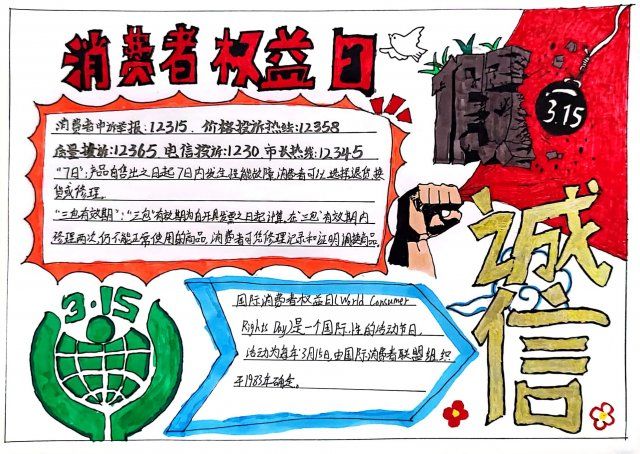 消费者权益日
消费者申诉举报:12315、价格投诉热线:12358
质量投诉:12365 电信投诉:1230 市长热线:12345
“7日”:产品自售出之日起7日内发生性能故障,消费者可以选择退货、换
货或修理。
“三包有效期”:“三包”有效期为自开具发票之日起计算,在“三包”有效期内
修理两次,仍不能正常使用的商品,消费者可凭修理记录和证明调换商品。
假
3.15
诚
信
3·15
国际消费者权益日(World Consumer
Rights Day)是一个国际性的活动节日,
活动为每年3月15日,由国际消费者联盟组织
于1983年确定。